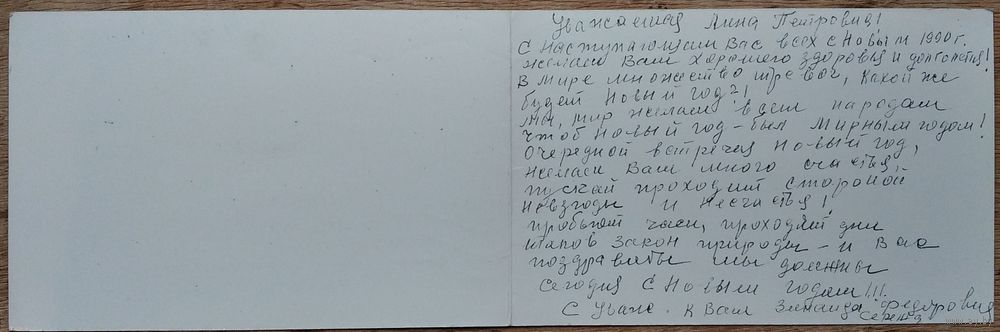 Уважаемая Анна Петровна!
С наступающим Вас всех с Новым 1990 г.
Желаем Вам хорошего здоровья и долголетия!
В мире множество тревог, какой же
будет Новый год?!
Мы, мир желаем всем народам
Чтоб Новый год - был Мирным годом!
Очередной встречая Новый год,
Желаем Вам много счастья,
пускай проходит стороной
невзгоды и несчастья!
пробьют часы, проходят дни
таков закон природы - и Вас
поздравить мы должны
сегодня с Новым годом!!!
С Уваж. к Вам Зинаида Федоровна